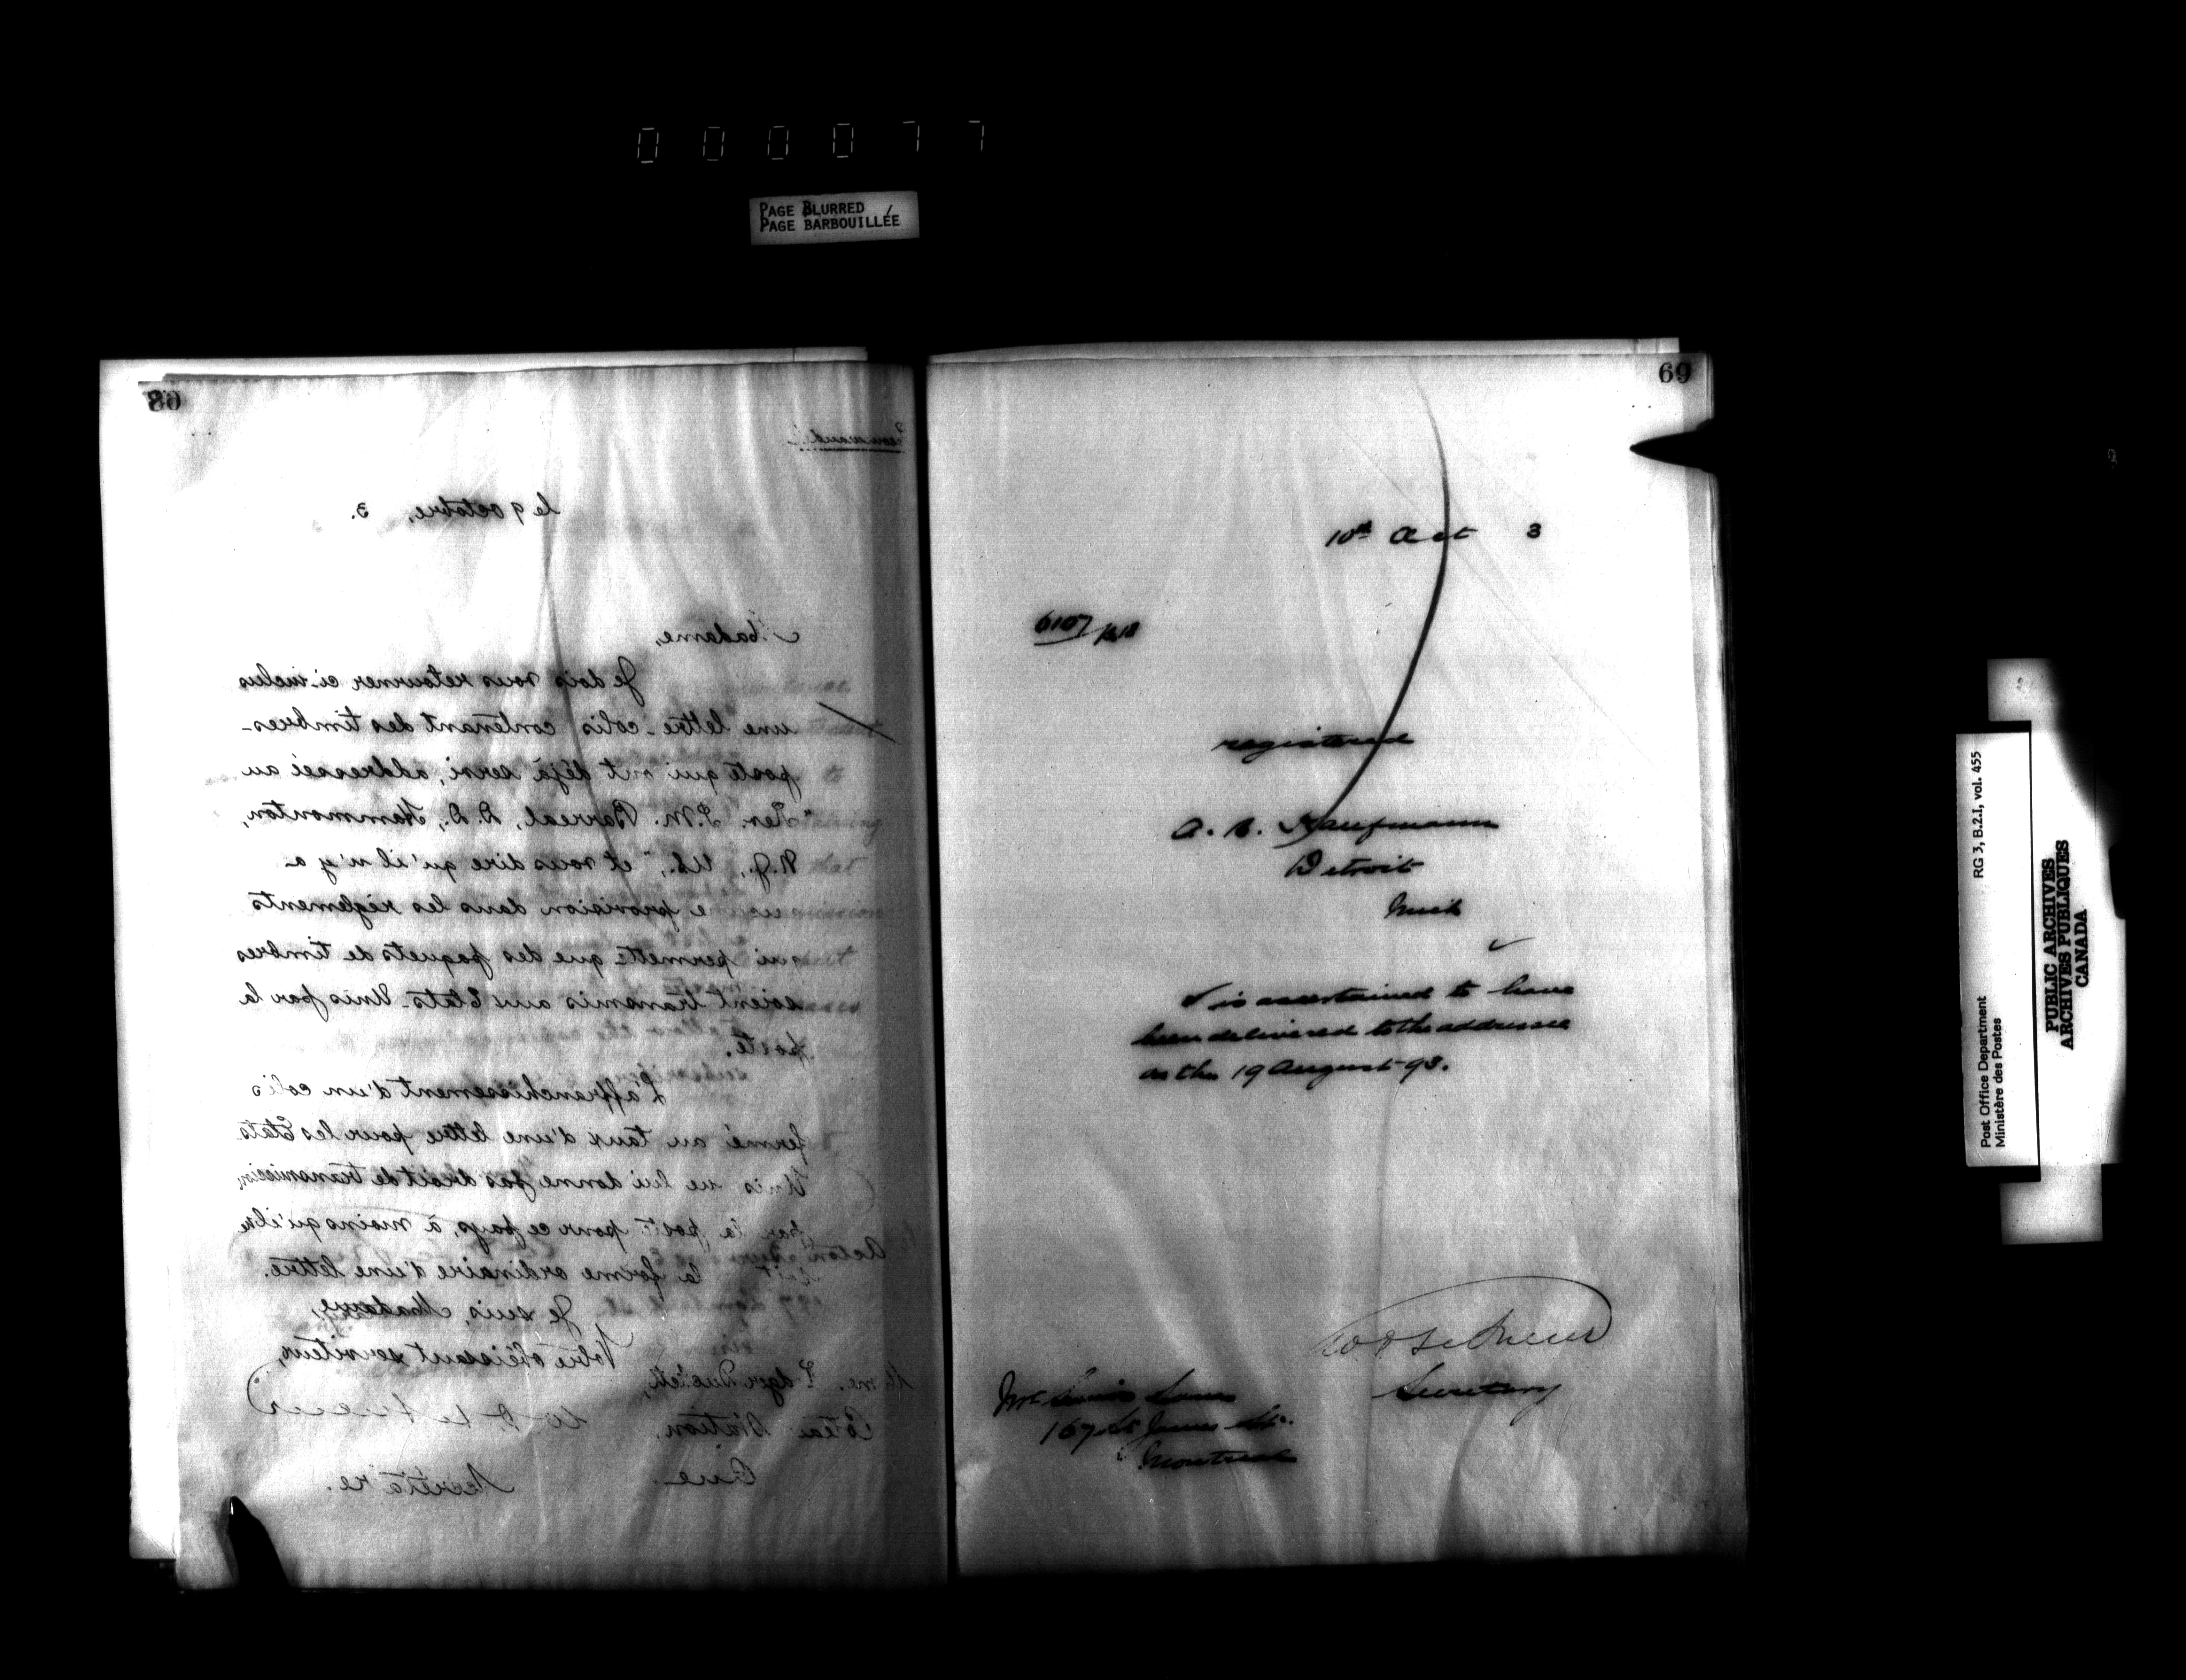 000077
PAGE BLURRED
PAGE BARBOUILLÉE
68
le 9 octobre, 3.
Madame,
Je dois vous retourner ci-inclus
une lettre-colis contenant des timbres-
poste qui ont déjà servi, addressei au
"Rev. J.M. Barreal, D.D., Hammonton,
N.J., U.S.," et vous dire qu'il n'y a
provision dans les règlements
qui permette que des paquets de timbres
soient transmis aux Etats-Unis par la
poste.
L'affranchissement d'un colis
fermé au taux d'une lettre pour les Etats
Unis ne lui donne pas droit de transmission,
par la poste pour ce pays, à moins qu'il ne
la forme ordinaire d'une lettre.
Je suis, Madame,
Votre obéissant serviteur,
Mme. Edgar
Station,
Que
Secrétaire.
69
10th Oct 3
6107
registered
A. Kaufmann
Detroit
Mich
is ascertained to have
been delivered to the addressee
on the 19 August 93.
Secretary
167 St James St.
Montreal
RG 3, B.2.I, vol. 455
Post Office Department
Ministère des Postes
PUBLIC ARCHIVES
ARCHIVES PUBLIQUES
CANADA